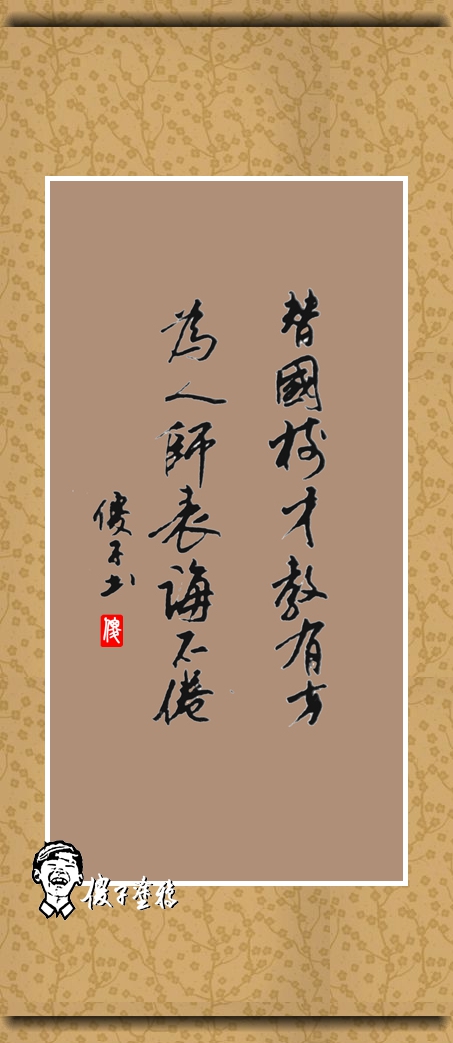 替國樹才教有方
為人師表誨不倦
傻子书
傻
傻子塗鸦